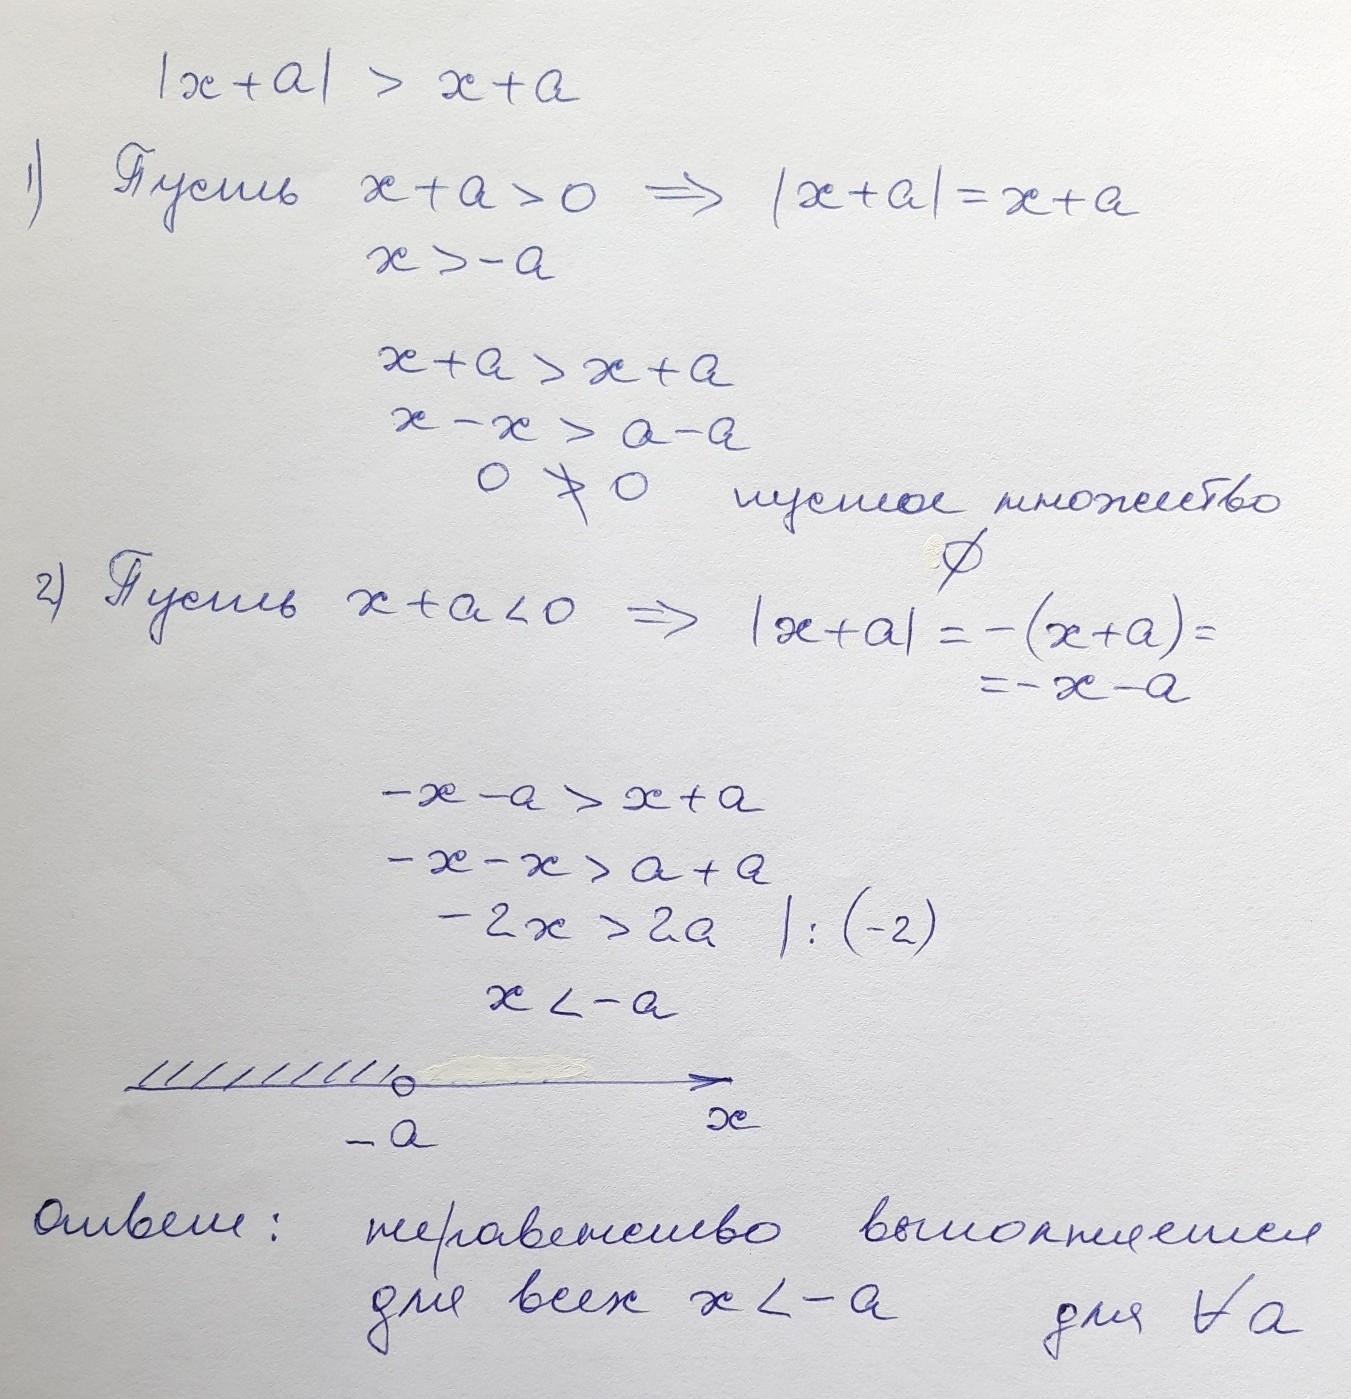 |x+a| > x+a
1) Пусть x+a>0 ⇒ |x+a|=x+a
x>-a
x+a>x+a
x-x>a-a
0 ≯ 0 пустое множество
∅
2) Пусть x+a<0 ⇒ |x+a|=-(x+a)=
=-x-a
-x-a>x+a
-x-x>a+a
-2x>2a |:(-2)
x<-a
-a x
Ответ: неравенство выполняется
для всех x<-a для ∀a